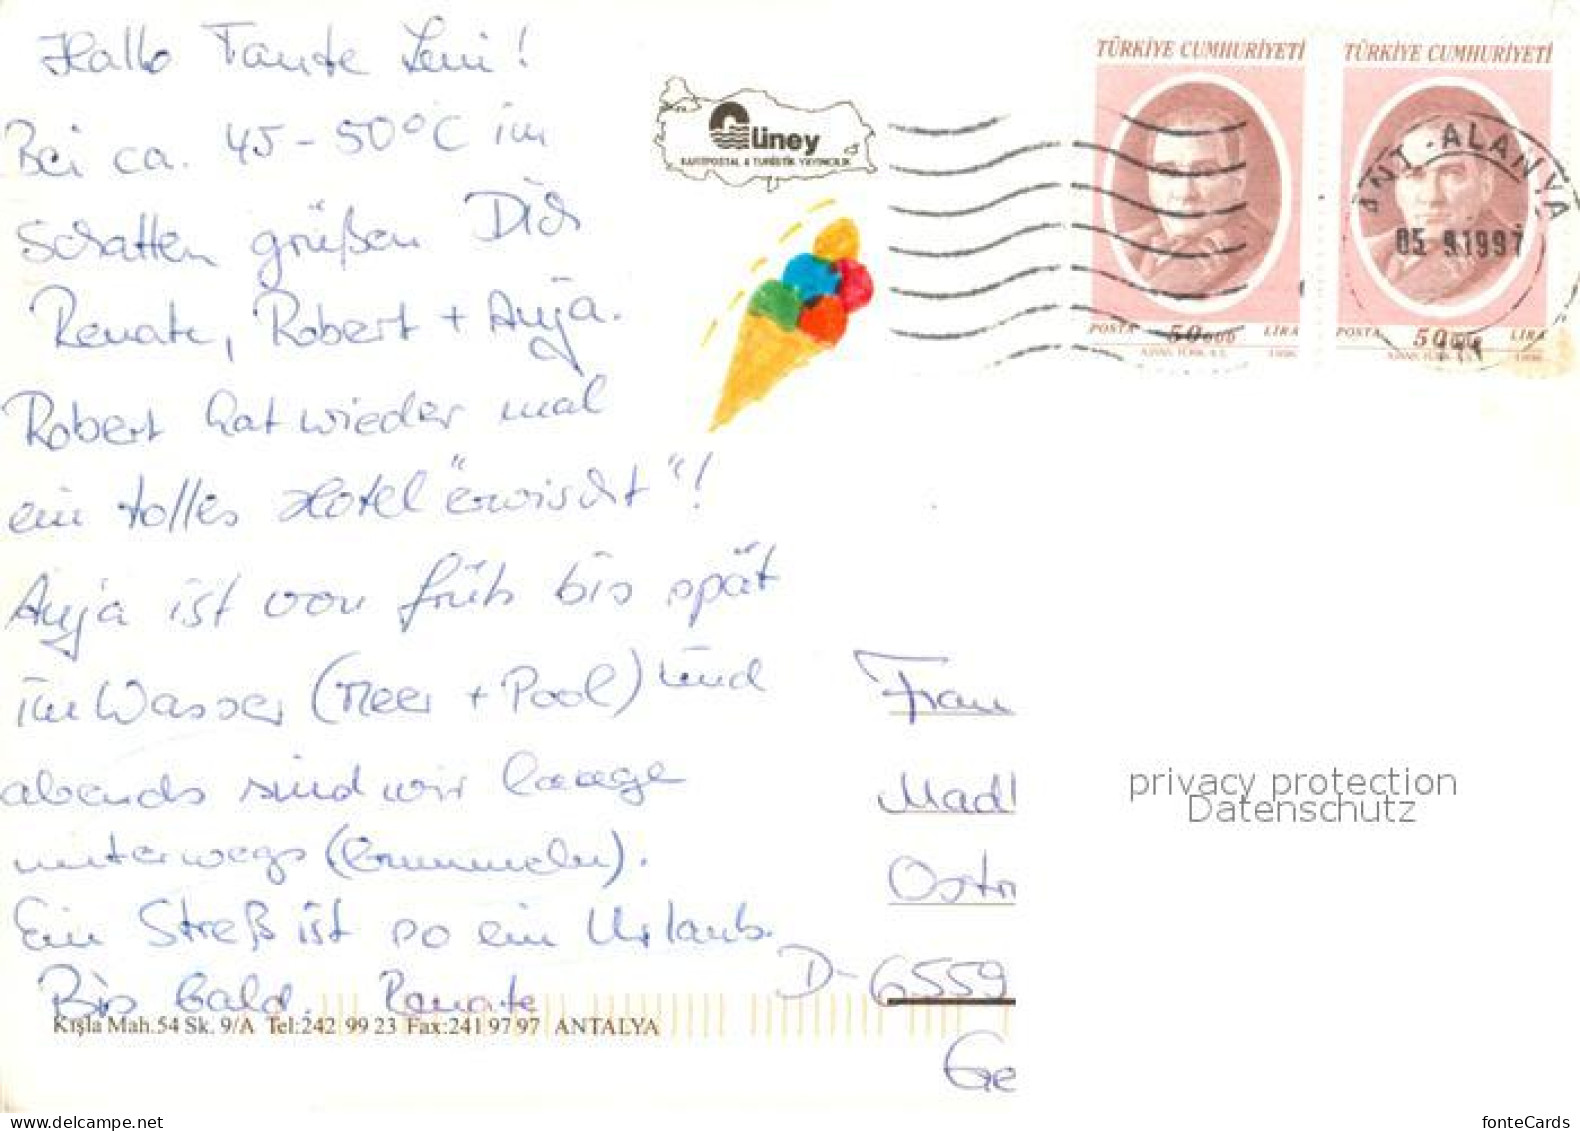 Hallo Tante Leni!
Bei ca. 45-50°C im
Schatten grüßen Dich
Renate, Robert + Anja.
Robert hat wieder mal
ein tolles Hotel "erwischt"!
Anja ist von früh bis spät
im Wasser (Meer + Pool) und
abends sind wir lange
unterwegs (bummeln).
Ein Streß ist so ein Urlaub.
Bis bald. Renate
Kışla Mah.54 Sk. 9/A Tel:242 99 23 Fax:241 97 97 ANTALYA
liney
KARTPOSTAL & TURİSTİK YAYINCILIK
TÜRKİYE CUMHURİYETİ
POSTA 50000 LİRA
1996
TÜRKİYE CUMHURİYETİ
POSTA 50000 LİRA
1996
ANT.-ALANYA
05 9.1997
Frau
Madl
Ostr
D-6559
Ge
privacy protection
Datenschutz
www.delcampe.net
fonteCards